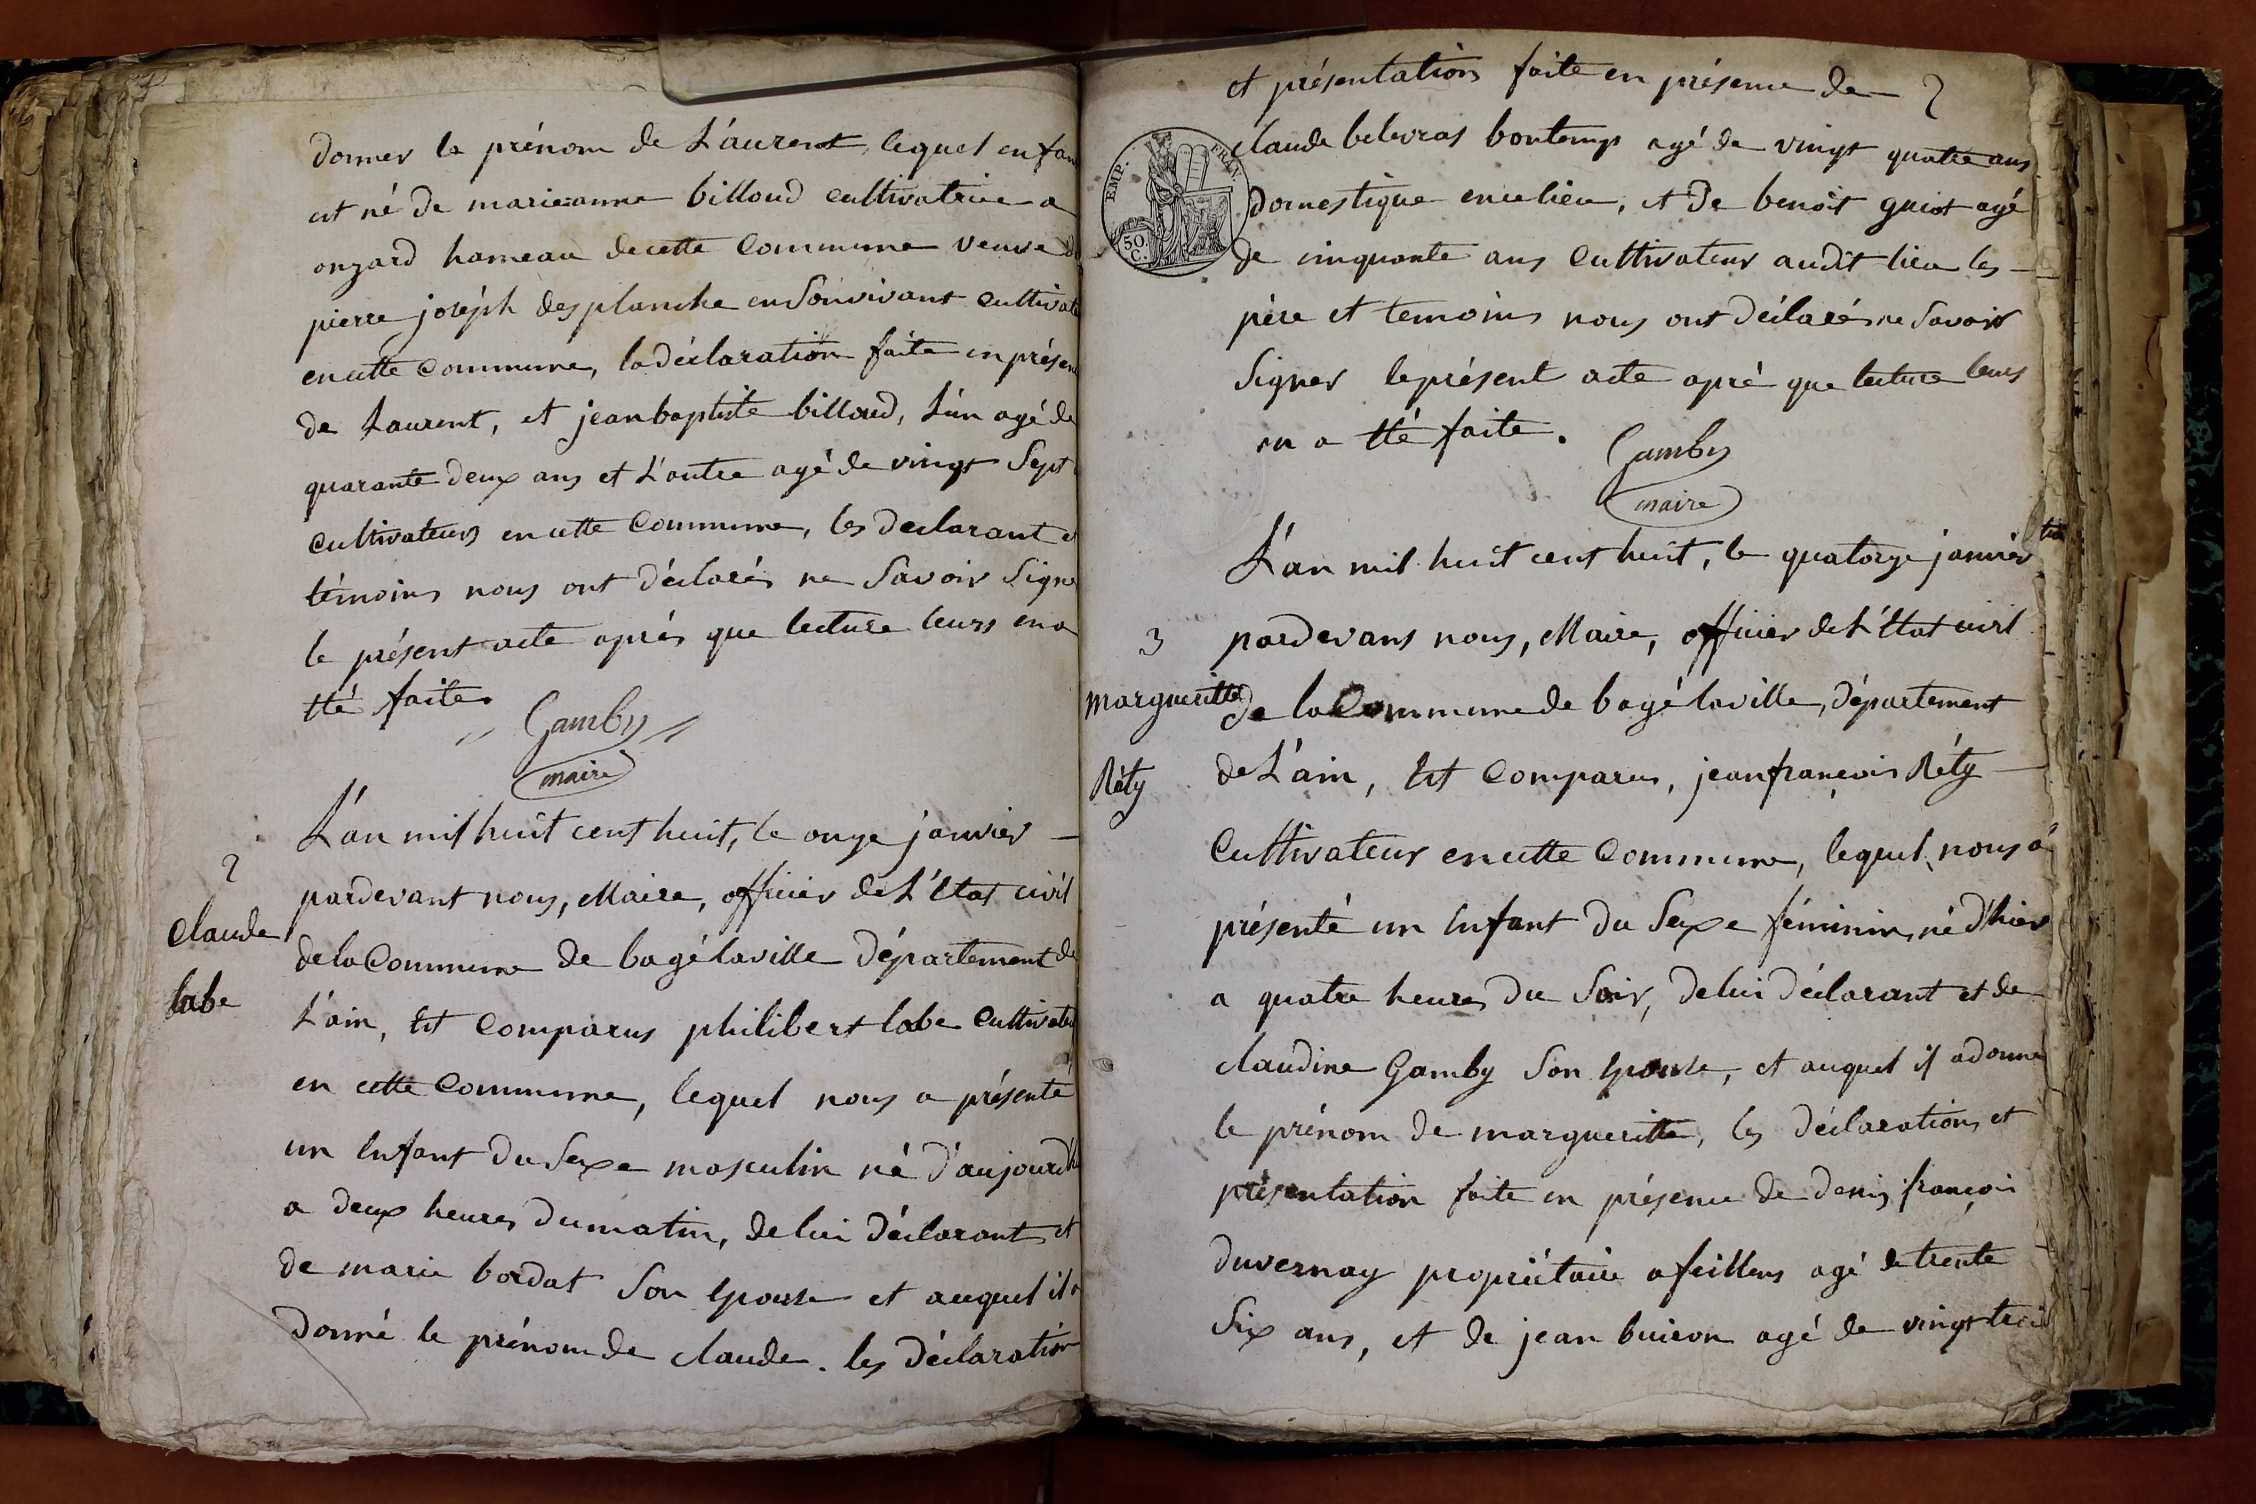 donner le prénom de Laurent, lequel enfan
est né de marieanne billoud cultivatrice a
onzard hameau decette Commune veuve de
pierre joseph desplanche enSonvivant cultivat
encette Commune, ladéclaration faite enprésen
de Laurent, et jeanbaptiste billoud, L'un agé de
quarante deux ans et L'autre agé de vingt Sept
cultivateurs encette Commune, les declarant et
témoins nous ont déclarés ne Savoir Signe
le présent acte aprés que lecture leurs ena
été faite.
Gamby
maire
L'an mil huit cent huit, le onze janvier
2
pardevant nous, Maire, officier de L'état civil
Claude
delaCommune de bagélaville Département de
labe
L'ain, Est Comparus philibert labe Cultivate
en cette Commune, lequel nous a présenté
un Enfant du Sexe masculin né d'aujourd'h
a deux heures dumatin, de lui déclarant et
de marie bordat Son Epouse et auquel il a
donné le prénom de claude. les déclaration
et présentation faite en présence de 2
claude belevras bontemps agé de vingt quatre ans
EMP. FRAN.
domestique encelieu, et de benoit guiot agé
50.
C.
de cinquante ans Cultivateur audit lieu les
père et temoins nous ont déclarés ne Savoir
Signer leprésent acte apré que lecture leurs
en a été faite.
Gamby
maire
L'an mil huit cent huit, le quatorze janvier
3
pardevans nous, Maire, officier de L'état civil
margueritte
de laCommune de bagélaville, département
de L'ain, Est Comparus, jeanfrançois Réty
Réty
Cultivateur encette Commune, lequel nous a
présenté un Enfant du Sexe féminin, né d'hier
a quatre heures du Soir, delui déclarant et de
claudine Gamby Son Epouse, et auquel il adonné
le prénom de margueritte, les déclarations et
présentation faite en présence de denis françois
duvernay propriétaire afeillens agé de trente
Six ans, et de jean buiron agé de vingt trois